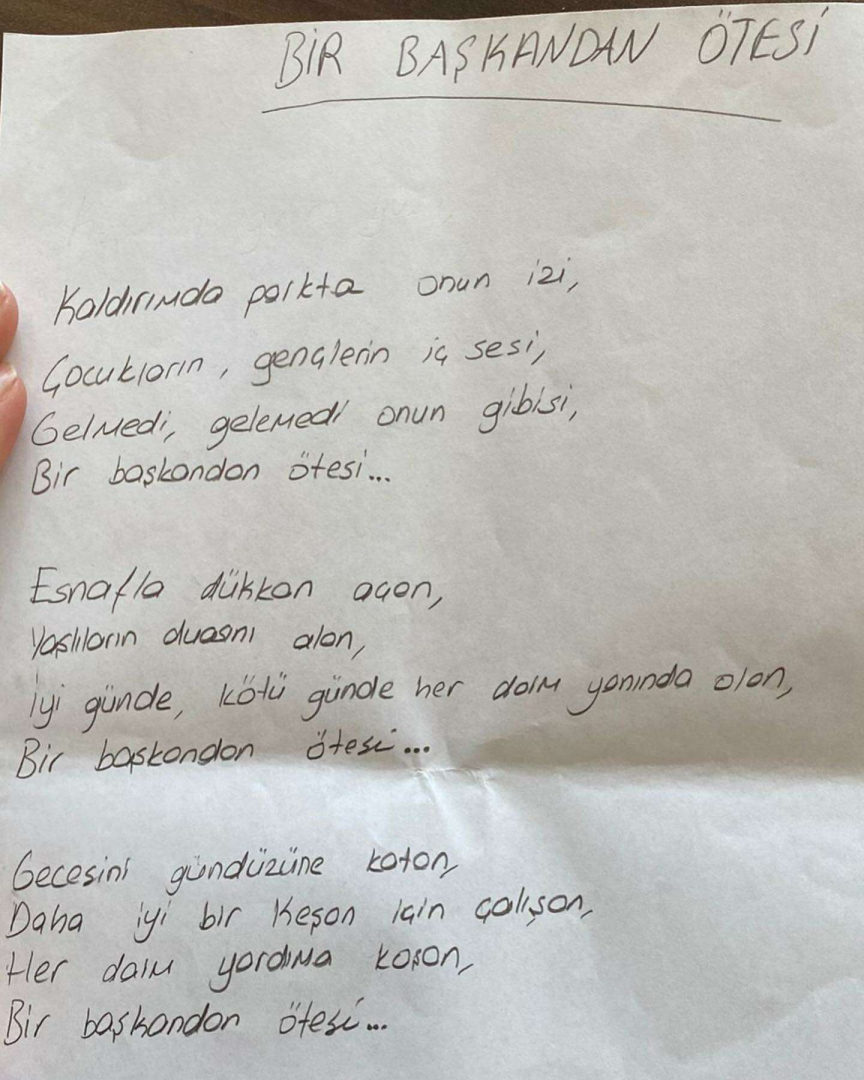 BİR BAŞKANDAN ÖTESİ
Kaldırımda parkta onun izi,
Çocukların, gençlerin iç sesi,
Gelmedi, gelemedi onun gibisi,
Bir başkandan ötesi...
Esnafla dükkan açan,
Yaşlıların duasnı alan,
İyi günde, kötü günde her daim yanında olan,
Bir başkandan ötesi...
Gecesini gündüzüne katan,
Daha iyi bir Keşan için çalışan,
Her daim yardıma koşan,
Bir başkandan ötesi...